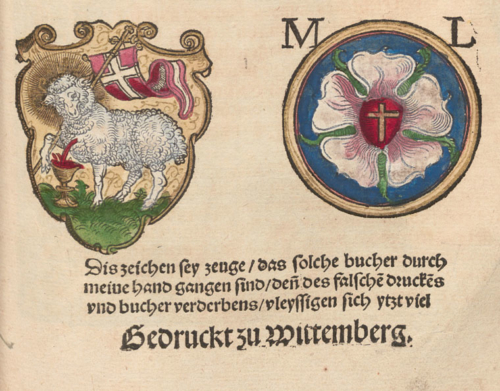 M L
Dis zeichen sey zeuge / das solche bucher durch
meine hand gangen sind / deñ des falschẽ druckẽs
vnd bucher verderbens / vleyssigen sich ytzt viel
Gedruckt zu Wittemberg.